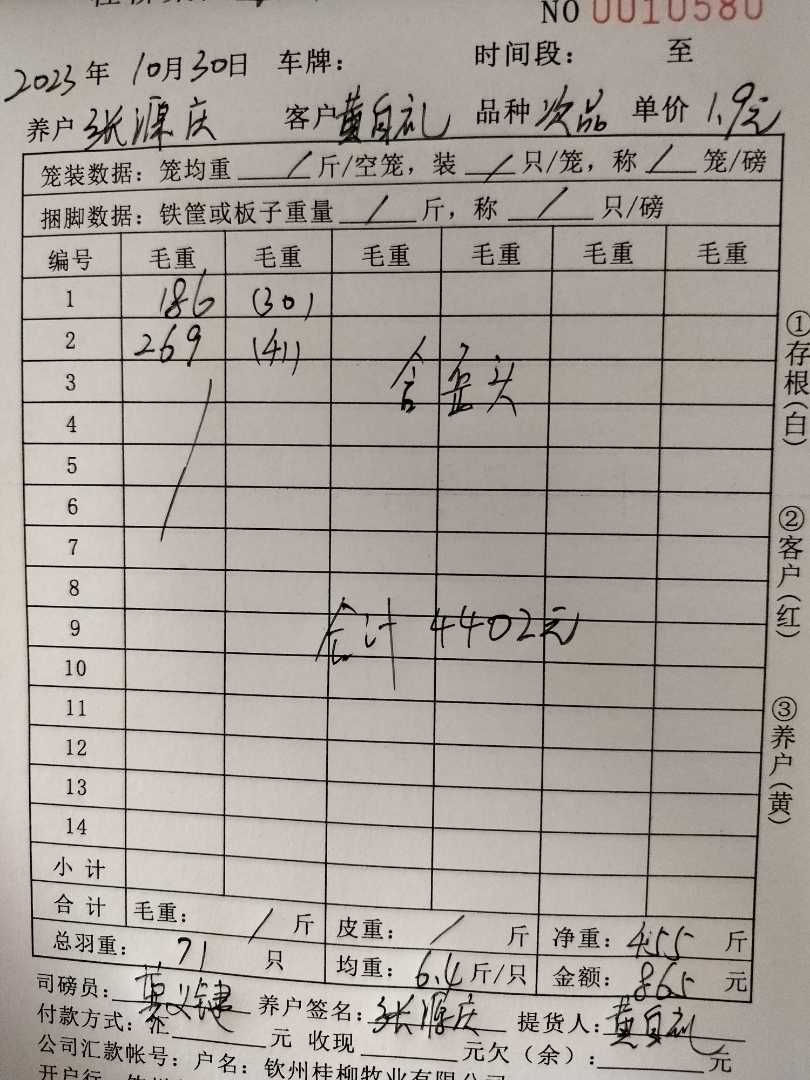 NO 0010580
2023年 10月30日 车牌: 时间段: 至
养户 张源庆 客户 黄自礼 品种 次品 单价 1.9元
笼装数据: 笼均重 / 斤/空笼, 装 / 只/笼, 称 / 笼/磅
捆脚数据: 铁筐或板子重量 / 斤, 称 / 只/磅
编号 毛重 毛重 毛重 毛重 毛重 毛重
1 186 (30)
2 269 (41)
3 含歪头
4
5
6
7
8
9 合计 4402元
10
11
12
13
14
小计
合计 毛重: / 斤 皮重: / 斤 净重: 455 斤
总羽重: 71 只 均重: 6.4 斤/只 金额: 865 元
司磅员: 养户签名: 张源庆 提货人: 黄自礼
付款方式: 汇 元 收现 元欠(余):
公司汇款帐号: 户名: 钦州桂柳牧业有限公司
开户行:
①存根(白)
②客户(红)
③养户(黄)